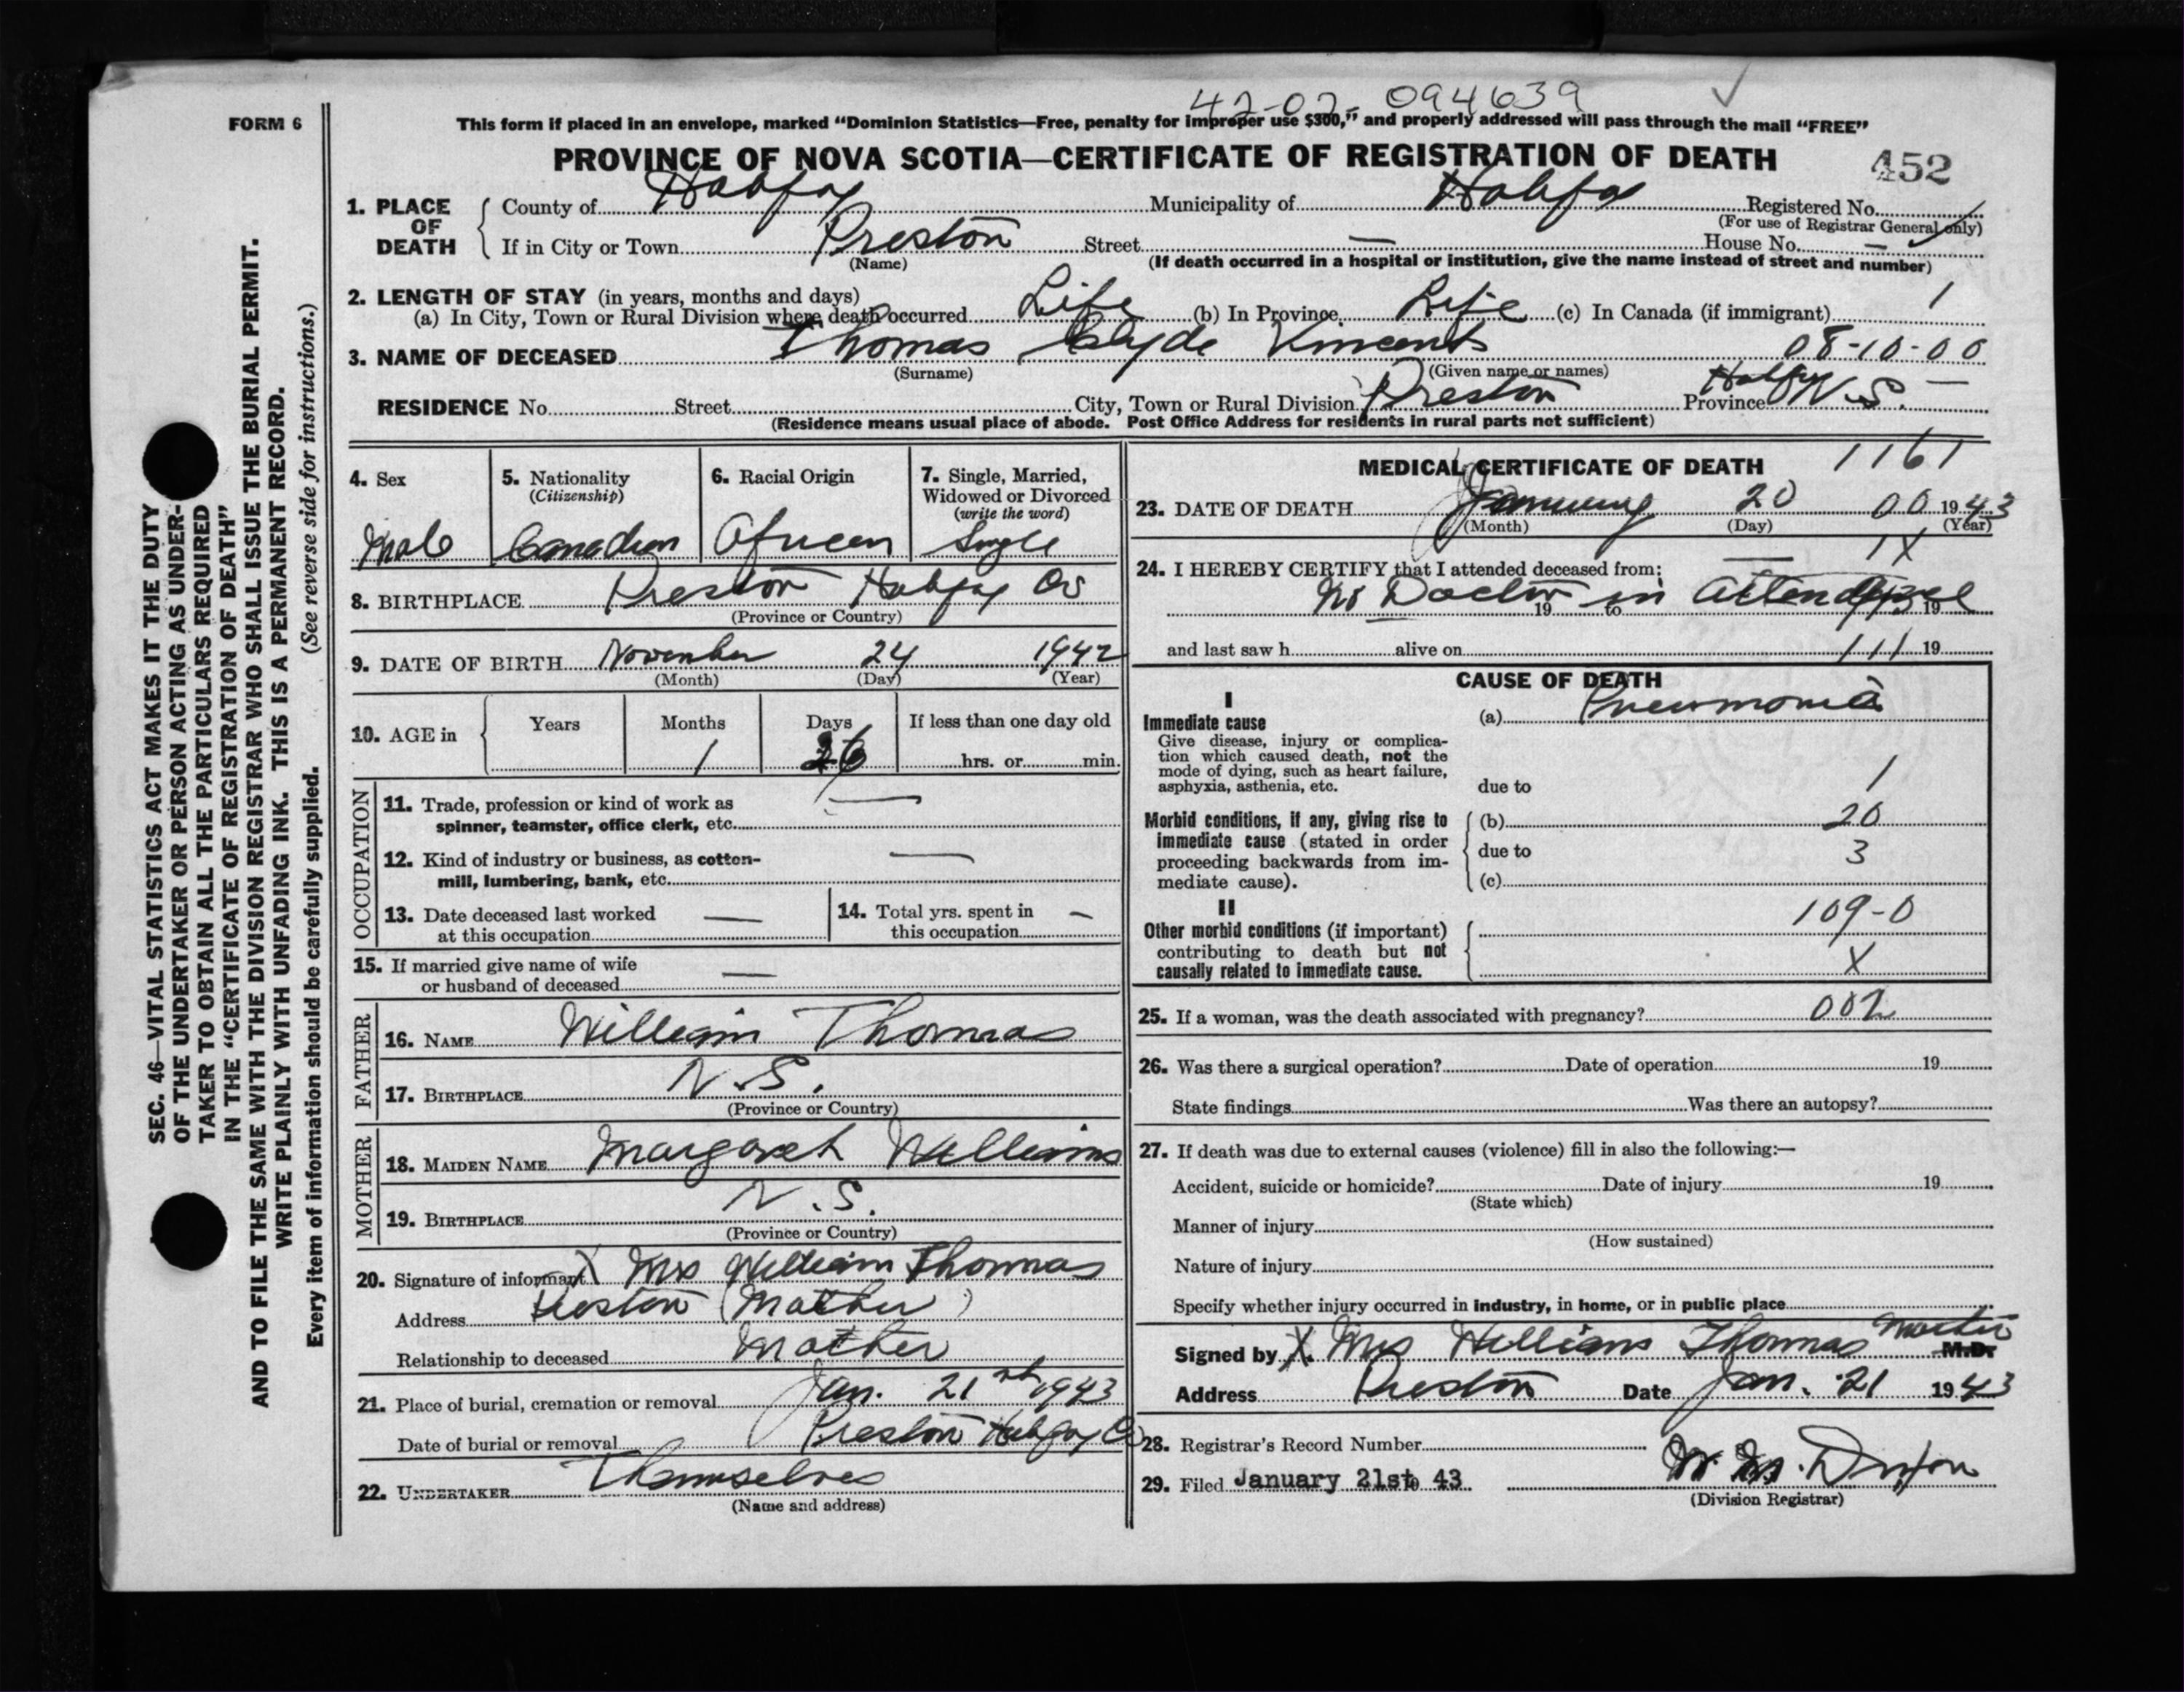 42-02-094639
FORM 6
This form if placed in an envelope, marked "Dominion Statistics—Free, penalty for improper use $300," and properly addressed will pass through the mail "FREE"
PROVINCE OF NOVA SCOTIA—CERTIFICATE OF REGISTRATION OF DEATH
452
1. PLACE OF DEATH
County of Halifax Municipality of Halifax Registered No.
(For use of Registrar General only)
If in City or Town Preston Street — House No. —
(Name) (If death occurred in a hospital or institution, give the name instead of street and number)
2. LENGTH OF STAY (in years, months and days)
(a) In City, Town or Rural Division where death occurred Life (b) In Province Life (c) In Canada (if immigrant) 1
3. NAME OF DECEASED Thomas Clyde Vincent 08-10-00
(Surname) (Given name or names)
RESIDENCE No. Street City, Town or Rural Division Preston Halifax Province N.S. —
(Residence means usual place of abode. Post Office Address for residents in rural parts not sufficient)
4. Sex
Male
5. Nationality
(Citizenship)
Canadian
6. Racial Origin
African
7. Single, Married,
Widowed or Divorced
(write the word)
Single
8. BIRTHPLACE Preston Halifax Co
(Province or Country)
9. DATE OF BIRTH November 24 1942
(Month) (Day) (Year)
10. AGE in
Years Months Days If less than one day old
1 26 hrs. or min.
OCCUPATION
11. Trade, profession or kind of work as
spinner, teamster, office clerk, etc. —
12. Kind of industry or business, as cotton-
mill, lumbering, bank, etc. —
13. Date deceased last worked
at this occupation —
14. Total yrs. spent in
this occupation —
15. If married give name of wife
or husband of deceased —
FATHER
16. NAME William Thomas
17. BIRTHPLACE N.S.
(Province or Country)
MOTHER
18. MAIDEN NAME Margaret Williams
19. BIRTHPLACE N.S.
(Province or Country)
20. Signature of informant X Mrs William Thomas
Address Preston (Mother)
Relationship to deceased Mother
21. Place of burial, cremation or removal Jan. 21st 1943
Date of burial or removal Preston Halifax Co
22. UNDERTAKER Themselves
(Name and address)
MEDICAL CERTIFICATE OF DEATH 1161
23. DATE OF DEATH January 20 00 1943
(Month) (Day) (Year)
1X
24. I HEREBY CERTIFY that I attended deceased from:
No Doctor in attendance
19 to 19
and last saw h alive on 111 19
CAUSE OF DEATH
I
Immediate cause
Give disease, injury or complica-
tion which caused death, not the
mode of dying, such as heart failure,
asphyxia, asthenia, etc.
(a) Pneumonia
due to 1
Morbid conditions, if any, giving rise to
immediate cause (stated in order
proceeding backwards from im-
mediate cause).
(b) 20
due to 3
(c)
II
Other morbid conditions (if important)
contributing to death but not
causally related to immediate cause.
109-0
X
25. If a woman, was the death associated with pregnancy? 002
26. Was there a surgical operation? Date of operation 19
State findings Was there an autopsy?
27. If death was due to external causes (violence) fill in also the following:—
Accident, suicide or homicide? Date of injury 19
(State which)
Manner of injury
(How sustained)
Nature of injury
Specify whether injury occurred in industry, in home, or in public place
Signed by X. Mrs William Thomas Mother M.D.
Address Preston Date Jan. 21 1943
28. Registrar's Record Number
29. Filed January 21st 43
(Division Registrar)
SEC. 46—VITAL STATISTICS ACT MAKES IT THE DUTY
OF THE UNDERTAKER OR PERSON ACTING AS UNDER-
TAKER TO OBTAIN ALL THE PARTICULARS REQUIRED
IN THE "CERTIFICATE OF REGISTRATION OF DEATH"
AND TO FILE THE SAME WITH THE DIVISION REGISTRAR WHO SHALL ISSUE THE BURIAL PERMIT.
WRITE PLAINLY WITH UNFADING INK. THIS IS A PERMANENT RECORD.
Every item of information should be carefully supplied. (See reverse side for instructions.)